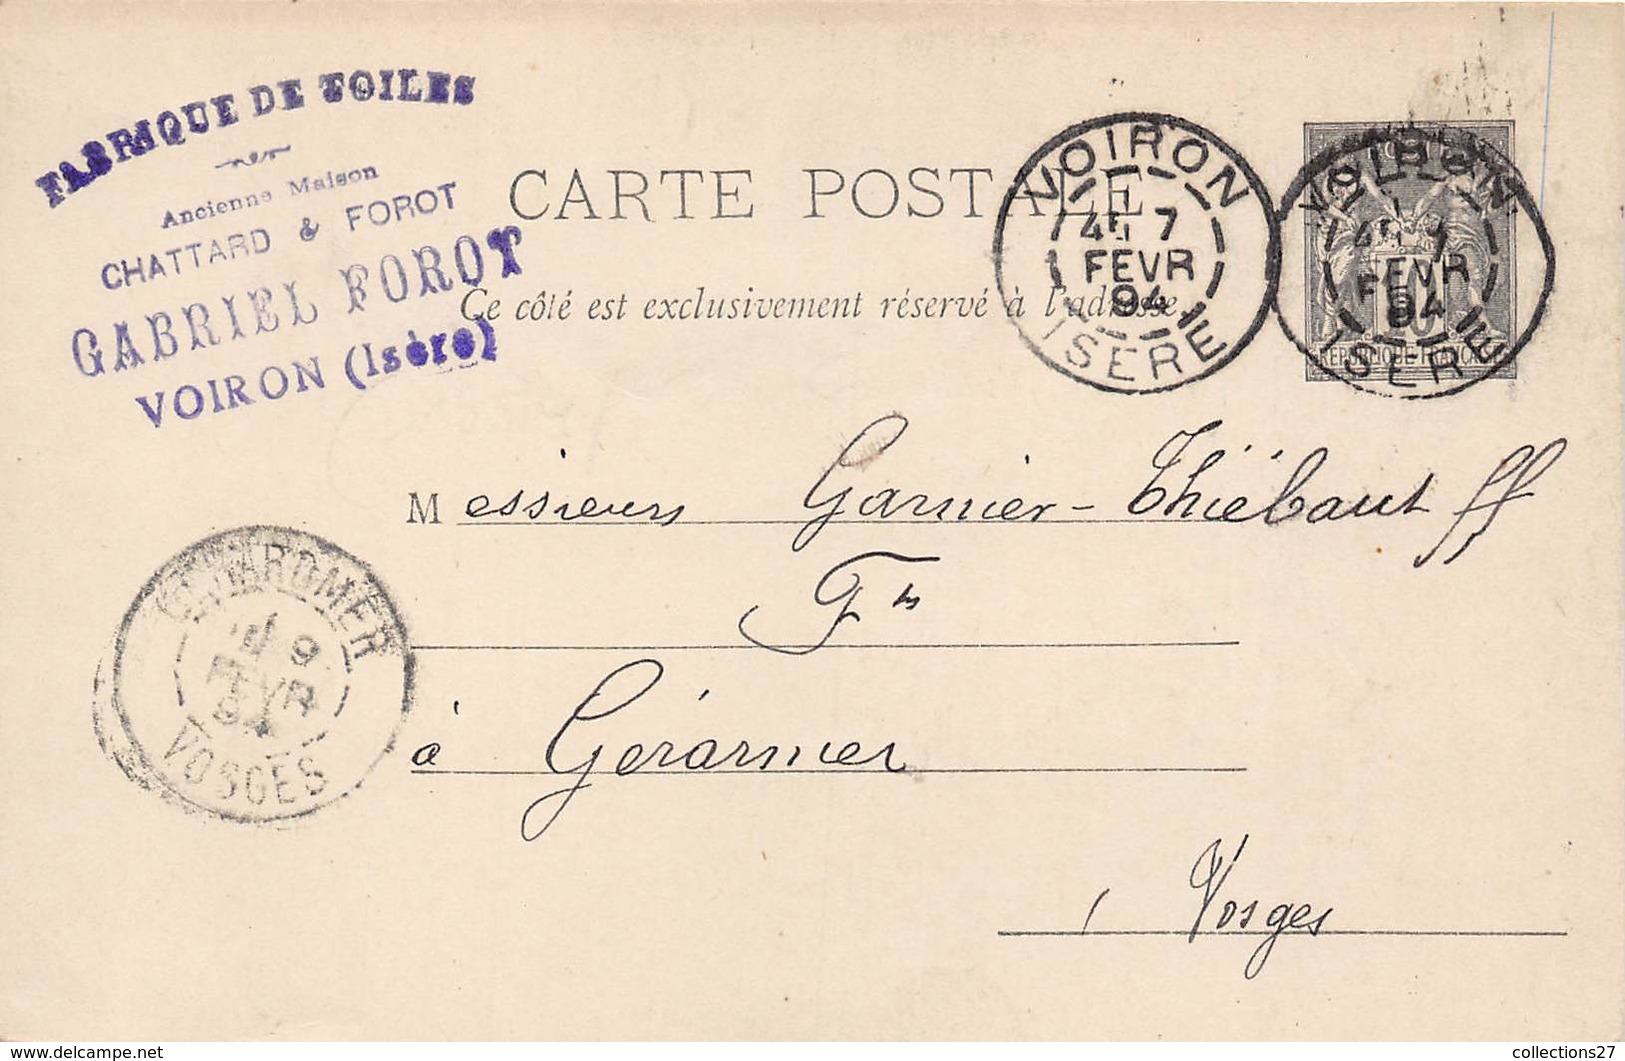 FABRIQUE DE TOILES
Ancienne Maison
CHATTARD & FOROT
GABRIEL FOROT
VOIRON (Isère)
CARTE POSTALE
Ce côté est exclusivement réservé à l'adresse.
VOIRON
7
FEVR
94
ISERE
VOIRON
7
FEVR
94
ISERE
10
REPUBLIQUE FRANÇAISE
Messieurs Garnier-Thiëbaut ff
Fts
à Gérarmer
Vosges
GERARDMER
9
FEVR
94
VOSGES
collections27